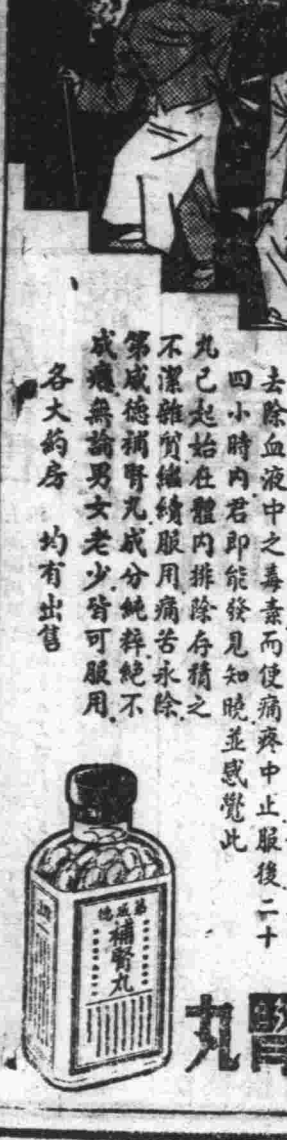 去除血液中之毒素而使痛疼中止服後二十
四小時內君即能發見知曉並感覺此
丸已起始在體內排除存積之
不潔雜質繼續服用痛苦永除
第威德補腎丸成分純粹絕不
成癮無論男女老少皆可服用
各大藥房 均有出售
第威德
補腎丸
腎丸